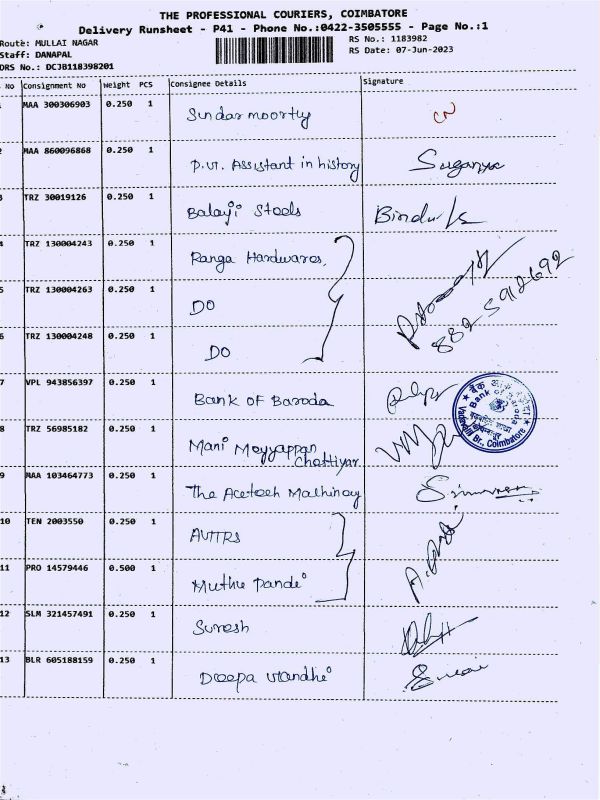 THE PROFESSIONAL COURIERS, COIMBATORE
Delivery Runsheet - P41 - Phone No.:0422-3505555 - Page No.:1
Route: MULLAI NAGAR
RS No.: 1183982
Staff: DANAPAL
RS Date: 07-Jun-2023
DRS No.: DCJB118398201
No Consignment No Weight PCS Consignee Details Signature
MAA 300306903 0.250 1 Sundar moorthy CN
2 MAA 860096868 0.250 1 P.vt. Assistant in history Suganya
3 TRZ 30019126 0.250 1 Balaji Steels Bindu
4 TRZ 130004243 0.250 1 Ranga Hardwares,
5 TRZ 130004263 0.250 1 DO
882 5912692
6 TRZ 130004248 0.250 1 DO
7 VPL 943856397 0.250 1 Bank of Baroda
Bank of Baroda
Br., Coimbatore
8 TRZ 56985182 0.250 1 Mani Meyyappan
Chettiyar
9 MAA 103464773 0.250 1 The Acetech Machinoy
10 TEN 2003550 0.250 1
11 PRO 14579446 0.500 1 Muthu Pandi
12 SLM 321457491 0.250 1 Suresh
13 BLR 605188159 0.250 1 Deepa